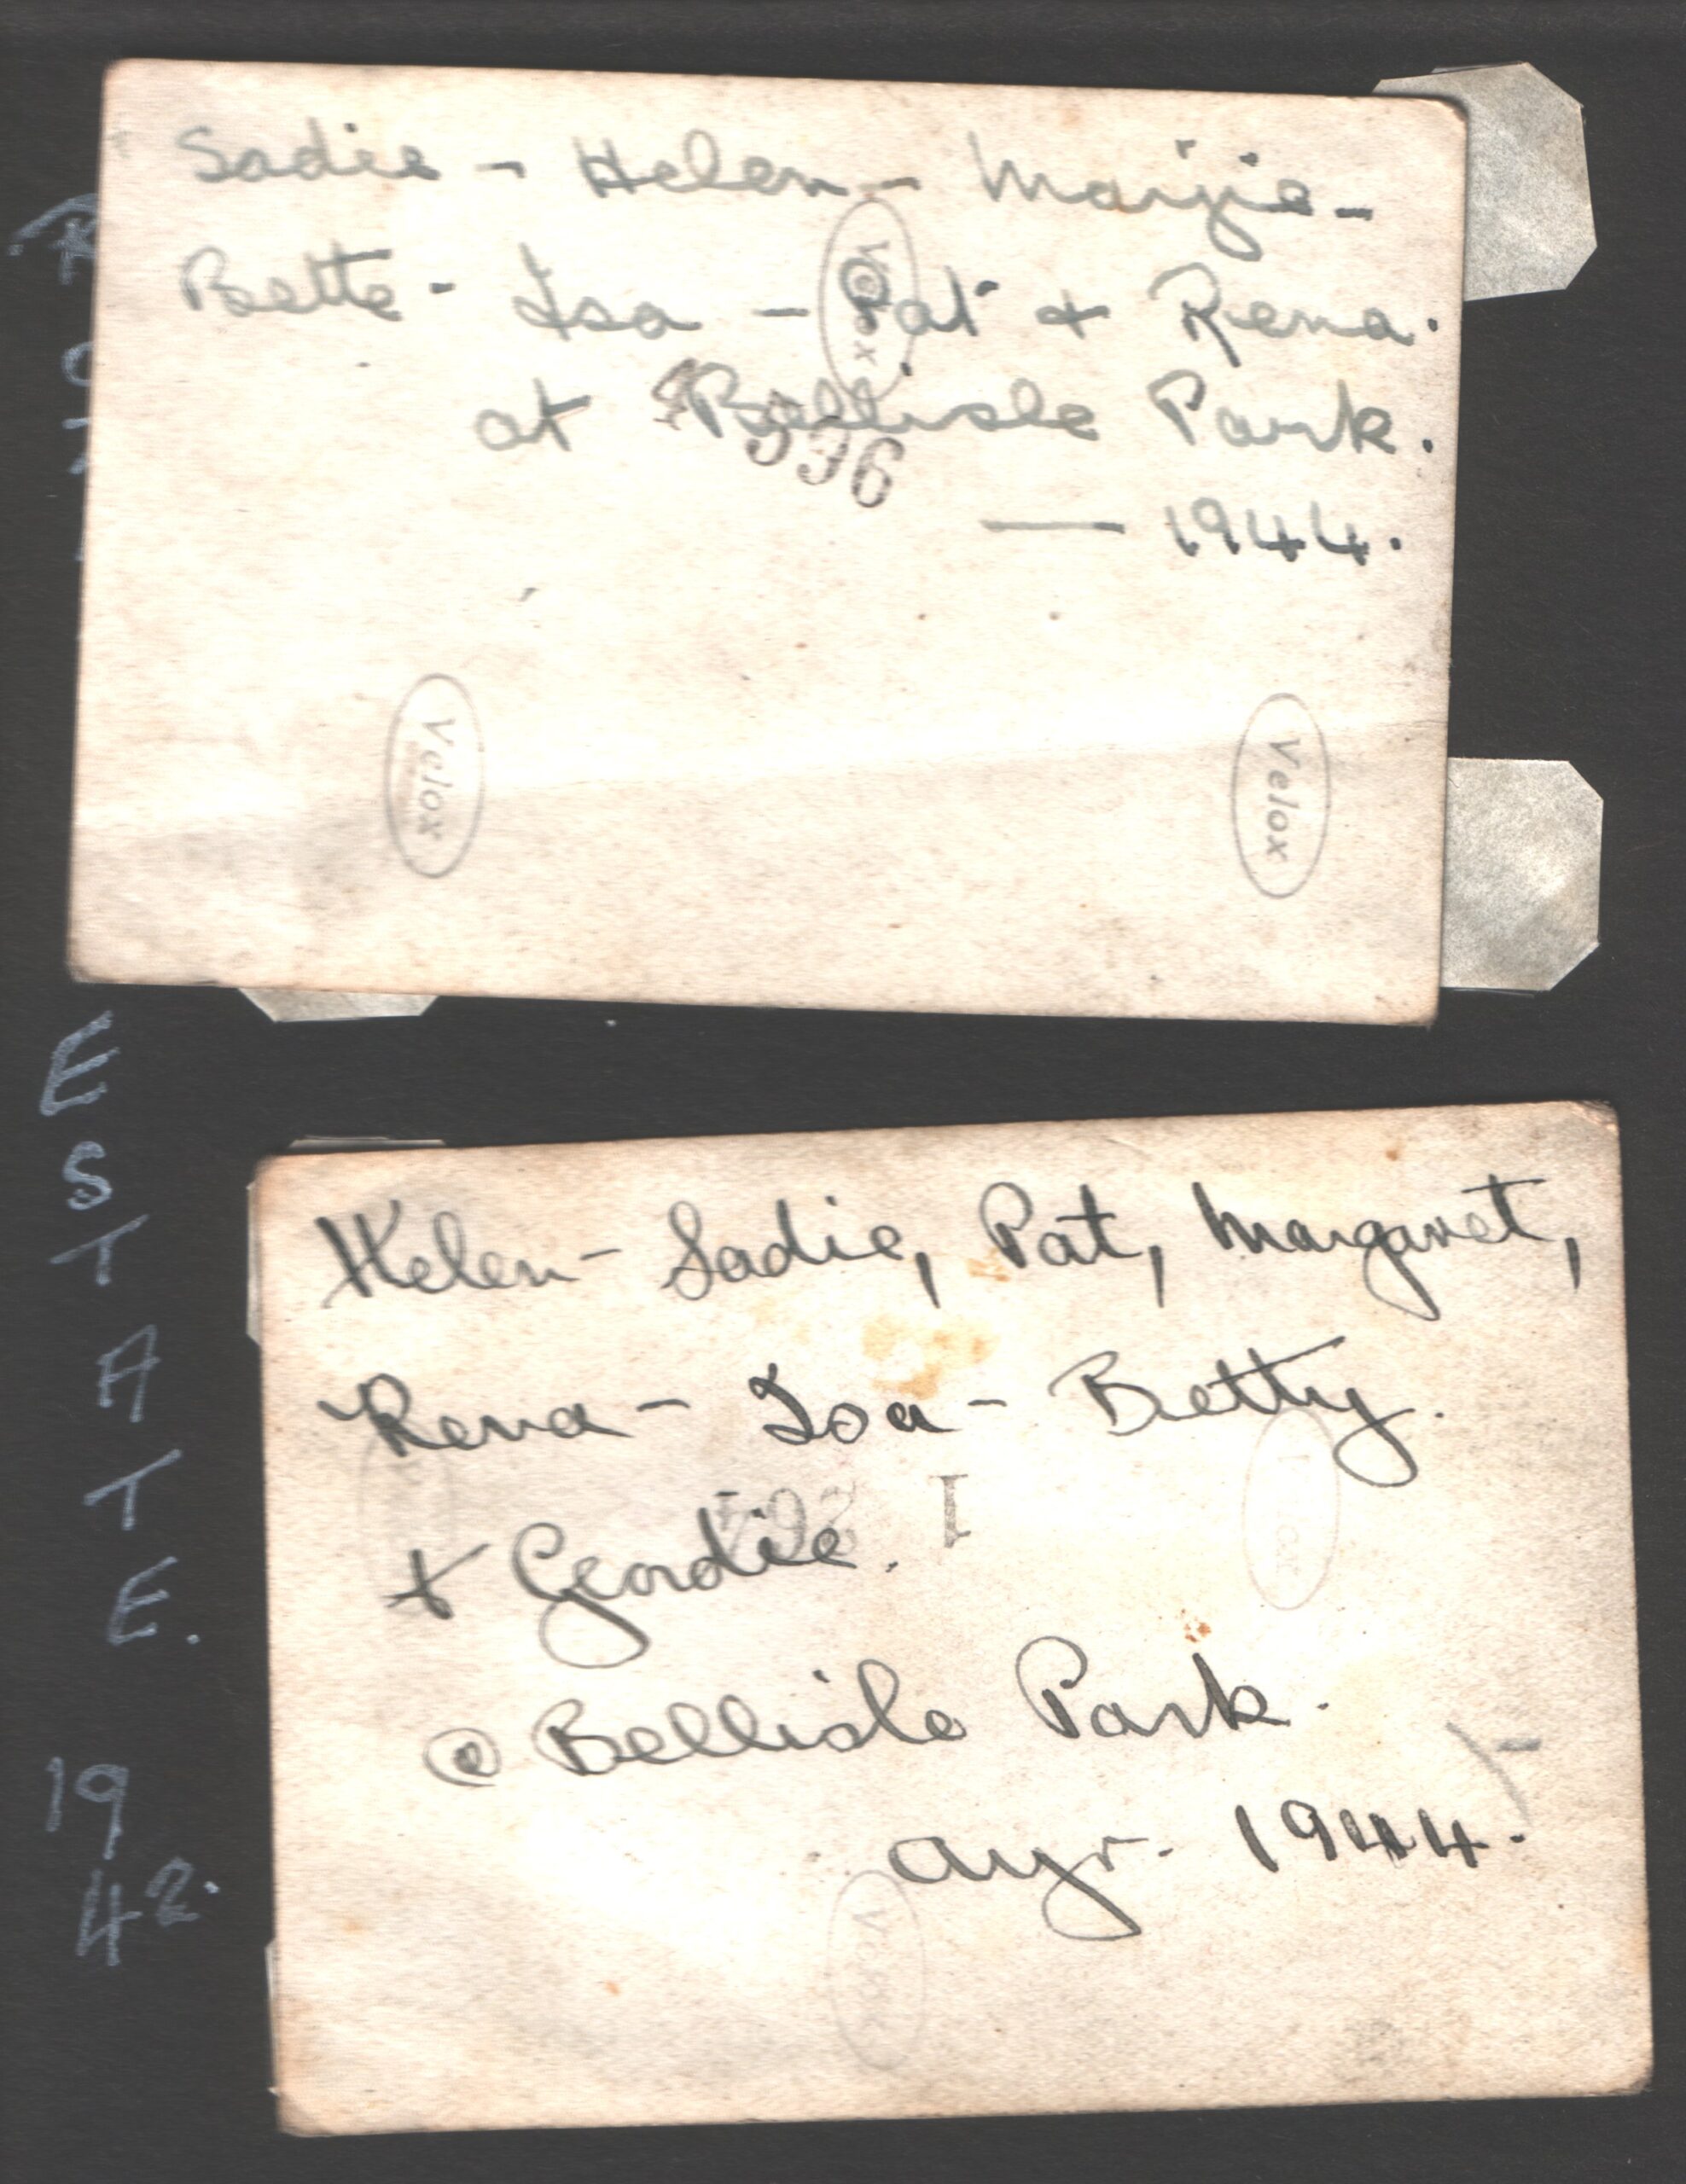 Sadie - Helen - Margie -
Bette - Isa - Pat + Rena.
at Bellisle Park.
— 1944.
Velox
596
Velox
Velox
ESTATE.
1942.
Helen - Sadie, Pat, Margaret,
Rena - Isa - Betty.
+ Geordie.
1
@ Bellisle Park.
Ayr. 1944.
Velox
Velox